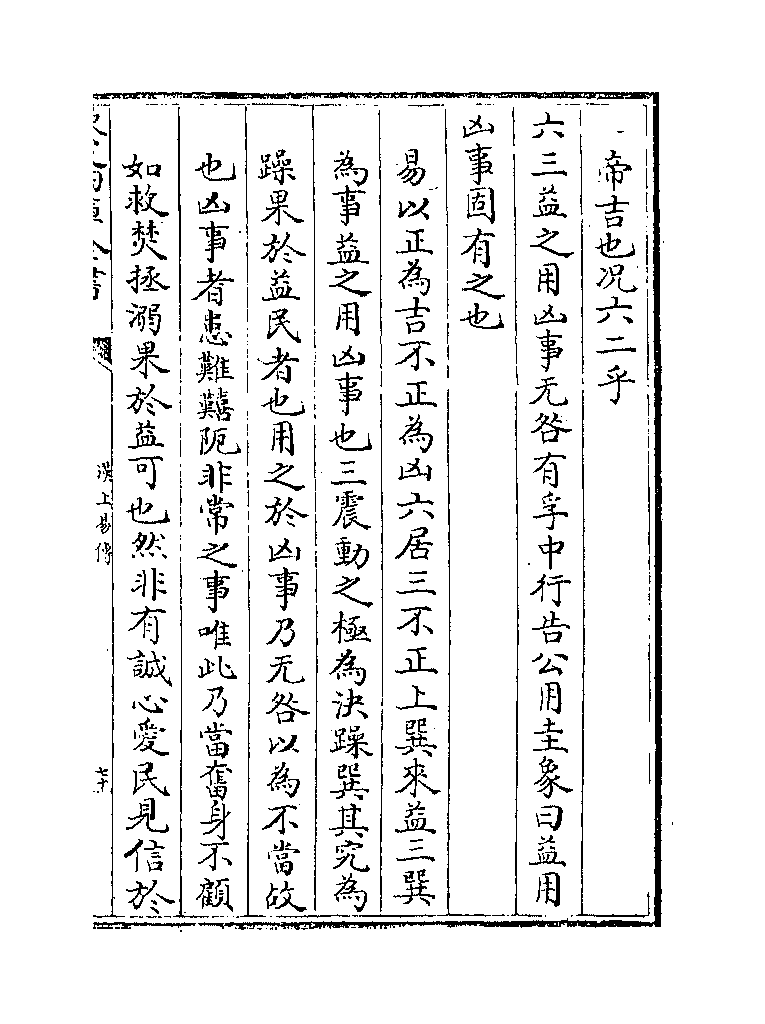 帝吉也况六二乎
六三益之用凶事无咎有孚中行告公用圭象曰益用
凶事固有之也
易以正為吉不正為凶六居三不正上巽來益三巽
為事益之用凶事也三震動之極為決躁巽其究為
躁果於益民者也用之於凶事乃无咎以為不當故
也凶事者患難囏阨非常之事唯此乃當奮身不顧
如救焚拯溺果於益可也然非有誠心愛民見信於
漢上易傳